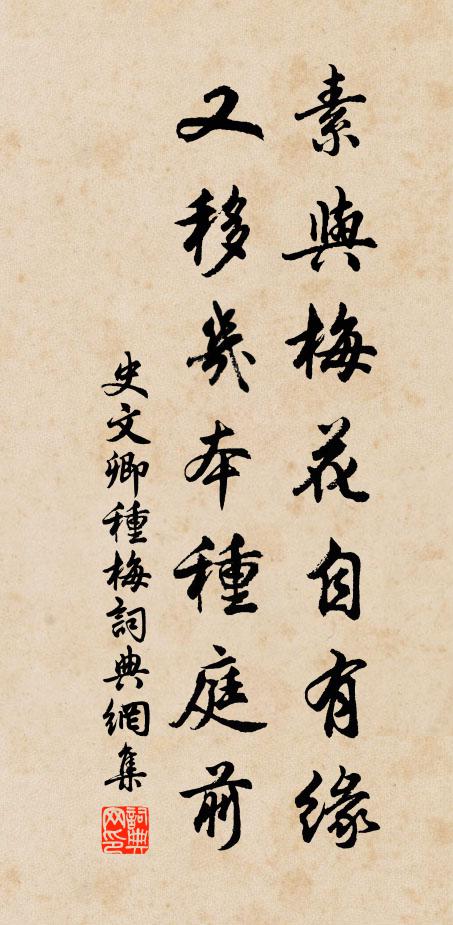 素與梅花自有緣
又移幾本種庭前
史文卿種梅詞典網集
詞典網印